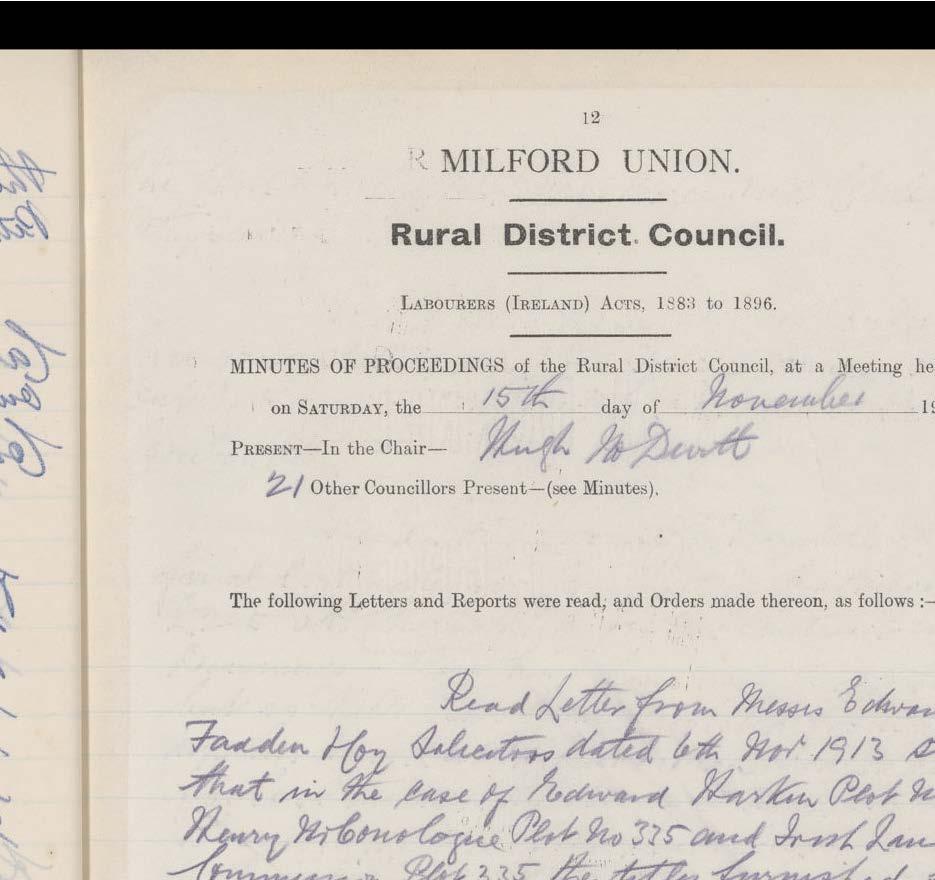 12
R MILFORD UNION.
Rural District Council.
LABOURERS (IRELAND) ACTS, 1883 to 1896.
MINUTES OF PROCEEDINGS of the Rural District Council, at a Meeting he
on SATURDAY, the 15th day of November 19
PRESENT—In the Chair— Hugh McDevitt
21 Other Councillors Present—(see Minutes).
The following Letters and Reports were read, and Orders made thereon, as follows :—
Read Letter from Messrs Edwar
Fadden & Coy Solicitors dated 6th Nov 1913 s
that in the case of Edward Harkin Plot N
Henry McConologue Plot No 335 and Irish Lan
Commission Plot 335 the titles furnished